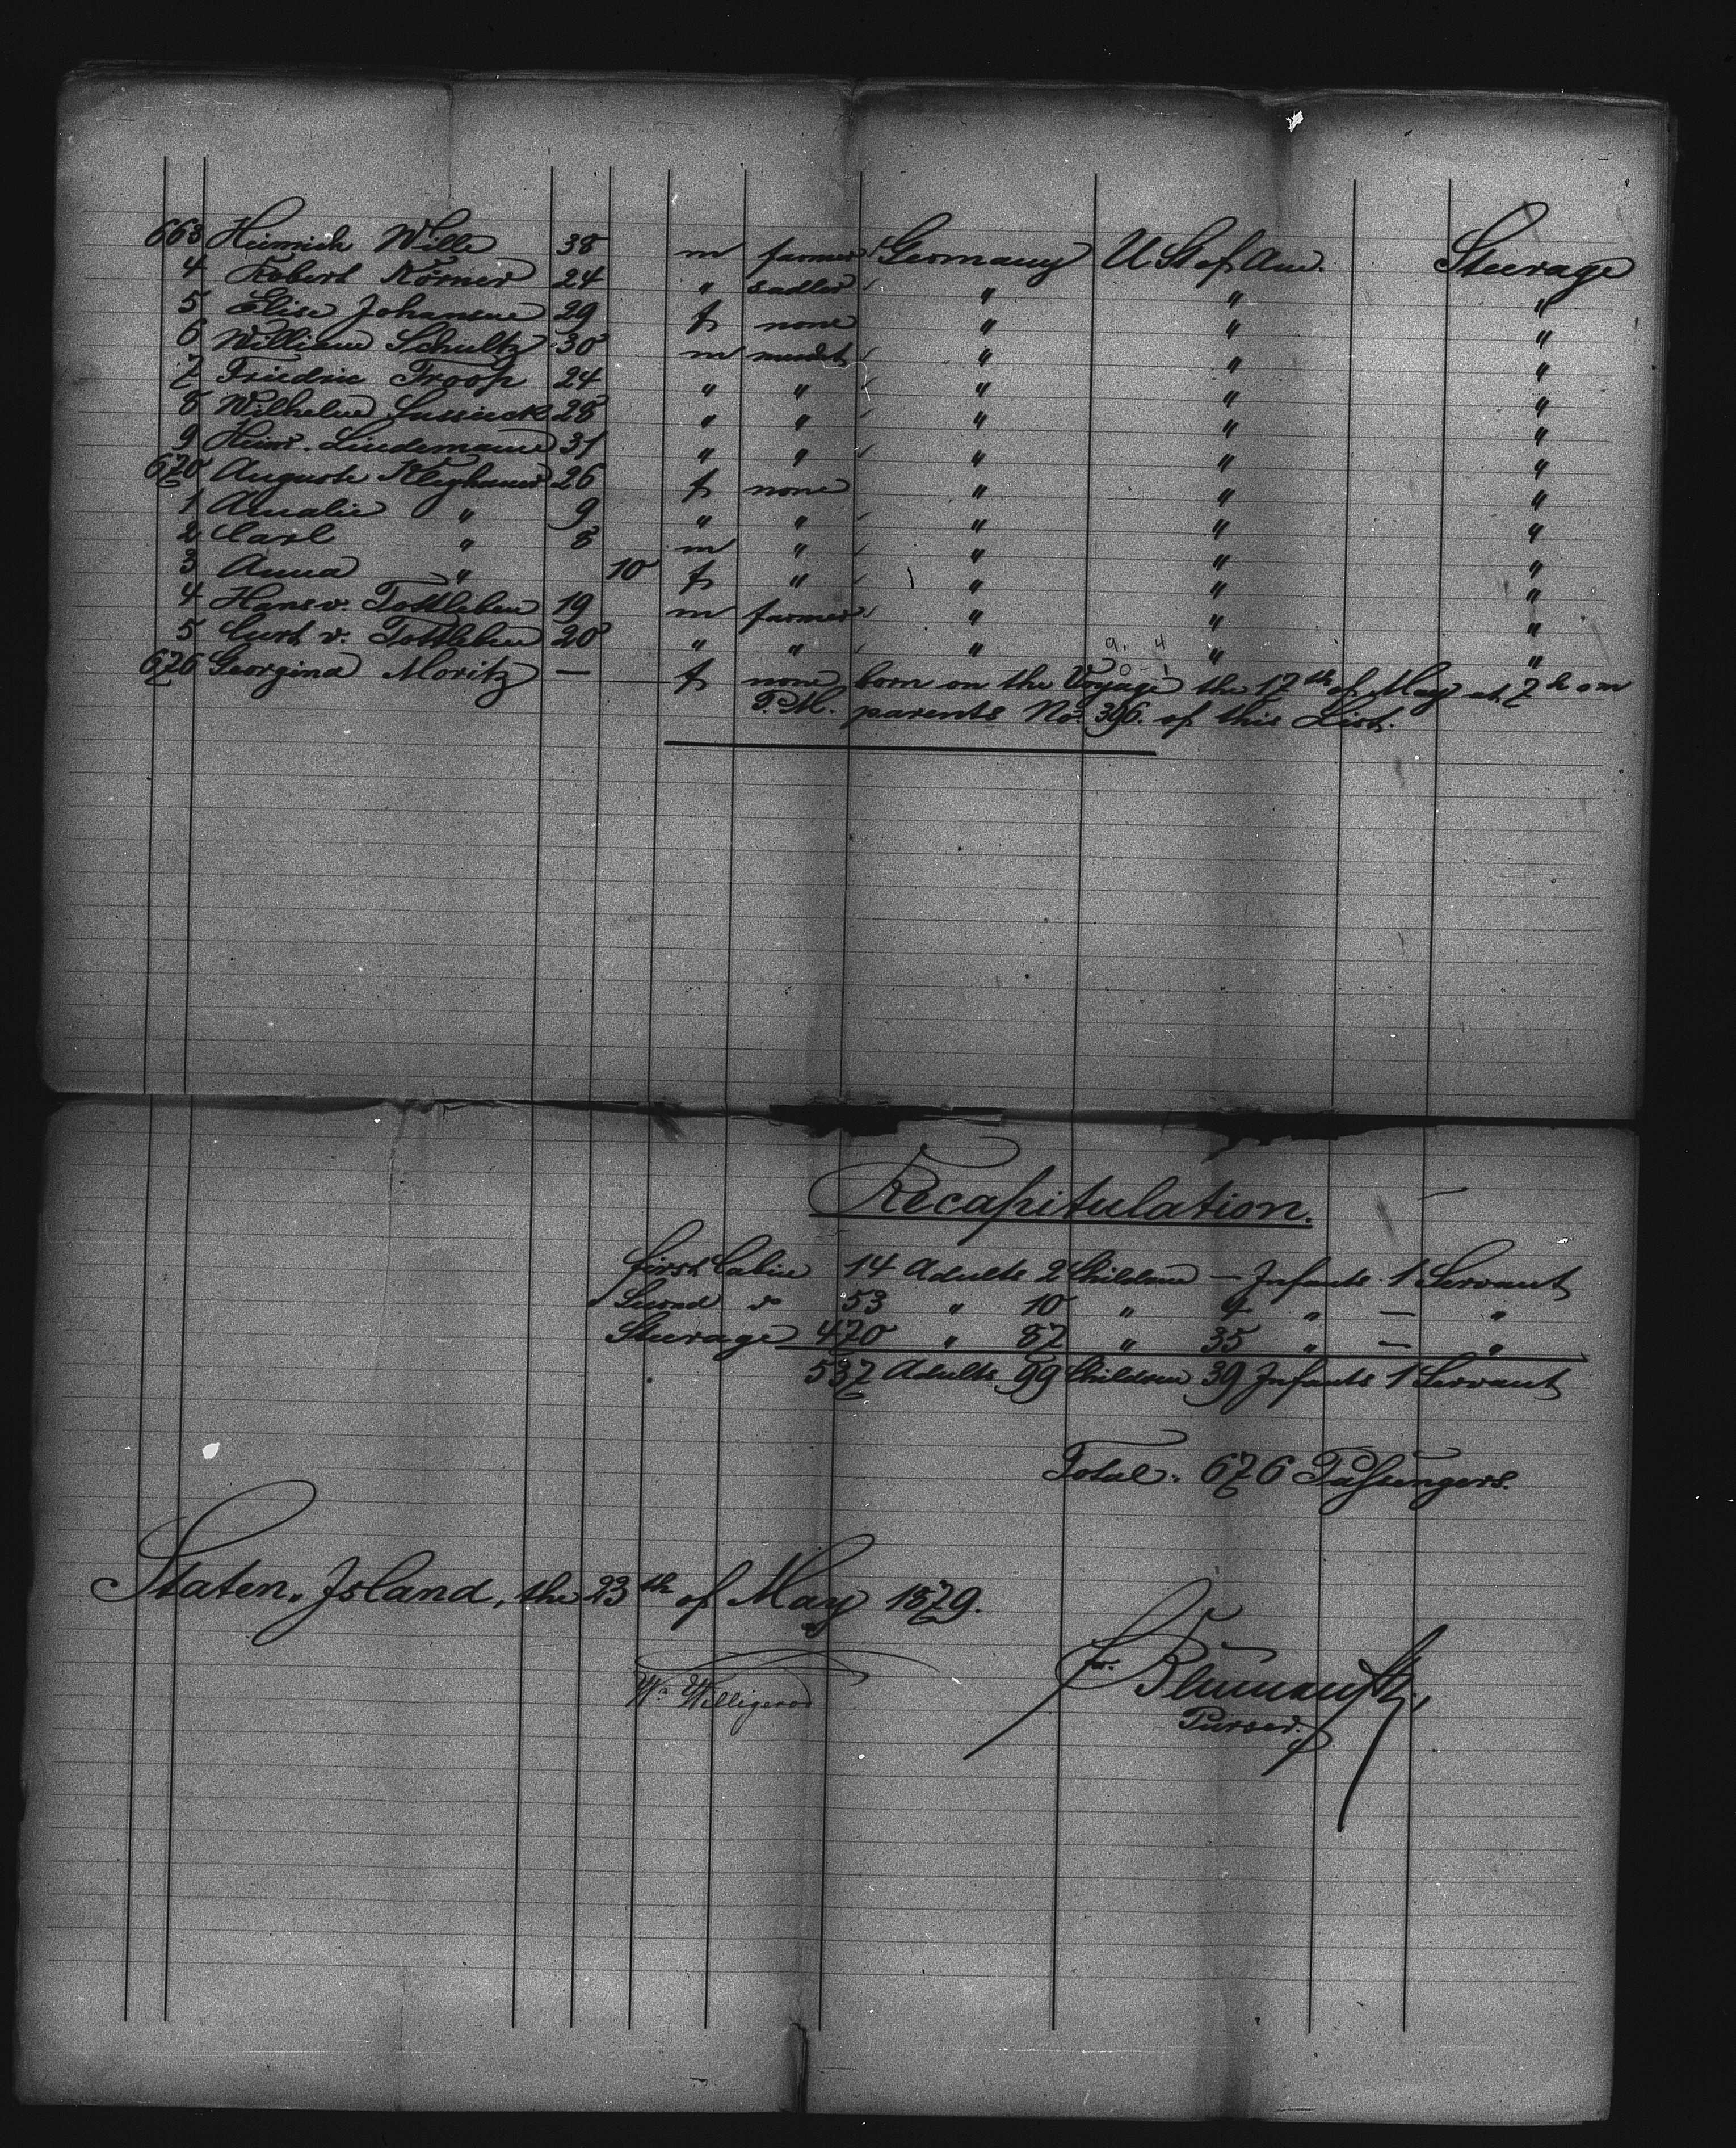 663 Heinrich Wille 38 m farmer Germany U St of Am. Steerage
4 Robert Körner 24 " sadler " " "
5 Elise Johansen 29 f none " " "
6 William Schultz 30 m " " "
7 Friedric Troop 24 " " " " "
8 Wilhelm 28 " " " " "
9 Heinr. Lindemann 31 " " " " "
670 Auguste Kleyhauer 26 f none " " "
1 Amalie " 9 " " " " "
2 Carl " 8 m " " " "
3 Anna " 10 f " " " "
4 Hans v. Tottleben 19 m farmer " " "
5 Curt v. Tottleben 20 " " " " "
676 Georgina Moritz — f none born on the Voyage the 17th of May at 7 h a m
parents No. 396. of this List.
Recapitulation.
first Cabin 14 Adults 2 Children — Infants 1 Servant
Second do 53 " 10 " 4 " — "
Steerage 470 " 87 " 35 " — "
537 Adults 99 Children 39 Infants 1 Servant
Total: 676 Passengers.
Staten Island, the 23th of May 1879.
W. Willigerod
Purser.